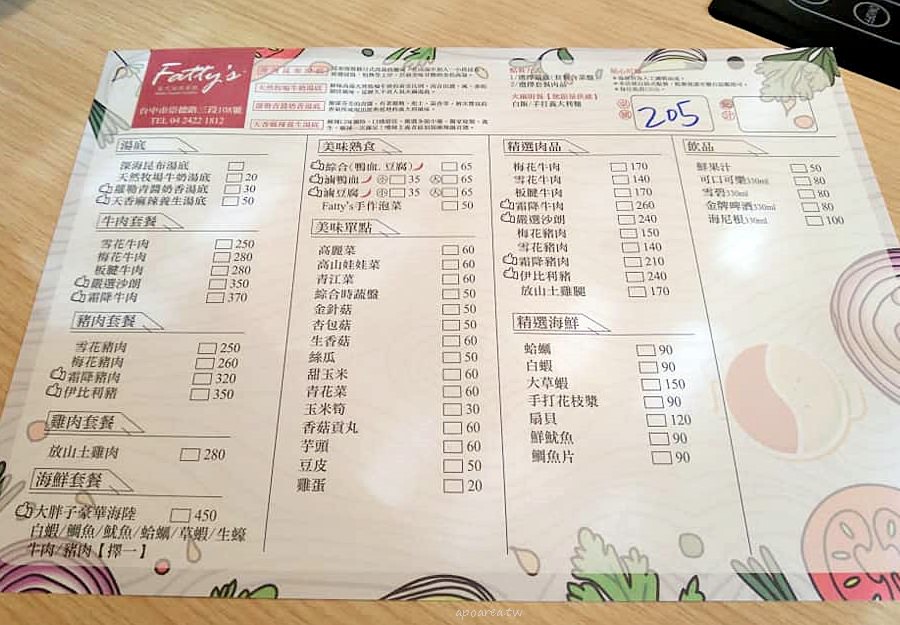 Fatty's
台中市崇德路三段108號
TEL 04 2422 1812
天然牧場牛奶湯底
羅勒青醬奶香湯底
天香麻辣養生湯底
白飯/手打義大利麵
205
湯底
深海昆布湯底
天然牧場牛奶湯底 20
羅勒青醬奶香湯底 30
天香麻辣養生湯底 50
牛肉套餐
雪花牛肉 250
梅花牛肉 280
板腱牛肉 280
嚴選沙朗 350
霜降牛肉 370
豬肉套餐
雪花豬肉 250
梅花豬肉 260
霜降豬肉 320
伊比利豬 350
雞肉套餐
放山土雞肉 280
海鮮套餐
大胖子豪華海陸 450
白蝦/鯛魚/魷魚/蛤蠣/草蝦/生蠔
牛肉/豬肉【擇一】
美味熟食
綜合(鴨血.豆腐) 65
滷鴨血 小 35 大 65
滷豆腐 小 35 大 65
Fatty's手作泡菜 50
美味單點
高麗菜 60
高山娃娃菜 60
青江菜 60
綜合時蔬盤 50
金針菇 50
杏包菇 50
生香菇 60
絲瓜 50
甜玉米 60
青花菜 60
玉米筍 30
香菇貢丸 60
芋頭 60
豆皮 50
雞蛋 20
精選肉品
梅花牛肉 170
雪花牛肉 140
板腱牛肉 170
霜降牛肉 260
嚴選沙朗 240
梅花豬肉 150
雪花豬肉 140
霜降豬肉 210
伊比利豬 240
放山土雞腿 170
精選海鮮
蛤蠣 90
白蝦 90
大草蝦 150
手打花枝漿 90
扇貝 120
鮮魷魚 90
鯛魚片 90
飲品
鮮果汁 50
可口可樂330ml 80
雪碧330ml 80
金牌啤酒330ml 80
海尼根330ml 100
apoareatw